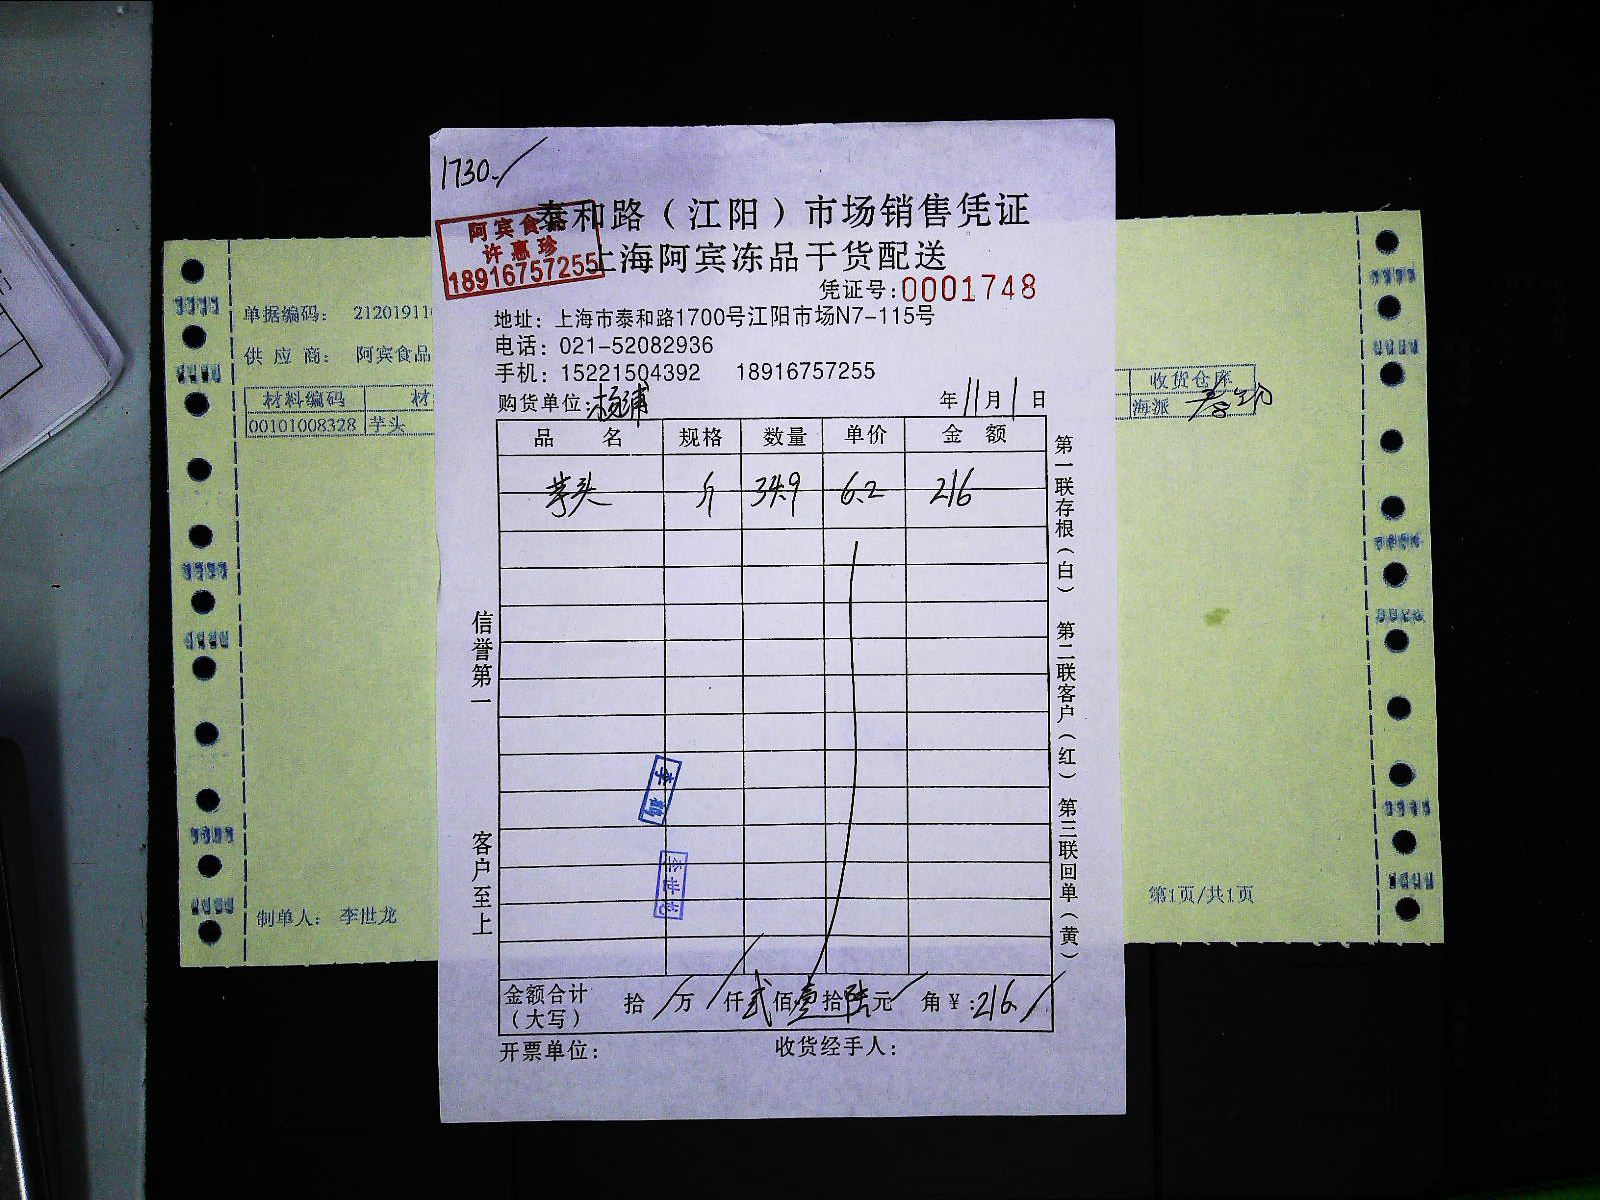 1730.
泰和路（江阳）市场销售凭证
阿宾食
许惠珍
18916757255
上海阿宾冻品干货配送
凭证号:0001748
地址：上海市泰和路1700号江阳市场N7-115号
电话：021-52082936
手机：15221504392 18916757255
购货单位:杨浦 年11月1日
品名 规格 数量 单价 金额
芋头 斤 34.9 6.2 216
第一联存根（白） 第二联客户（红） 第三联回单（黄）
信誉第一 客户至上
李世龙
金额合计（大写） 拾 万 仟贰佰壹拾陆元 角¥:216.
开票单位: 收货经手人:
单据编码： 21201911
供应商： 阿宾食品
材料编码 材
00101008328 芋头
收货仓库
海派
制单人： 李世龙
第1页/共1页